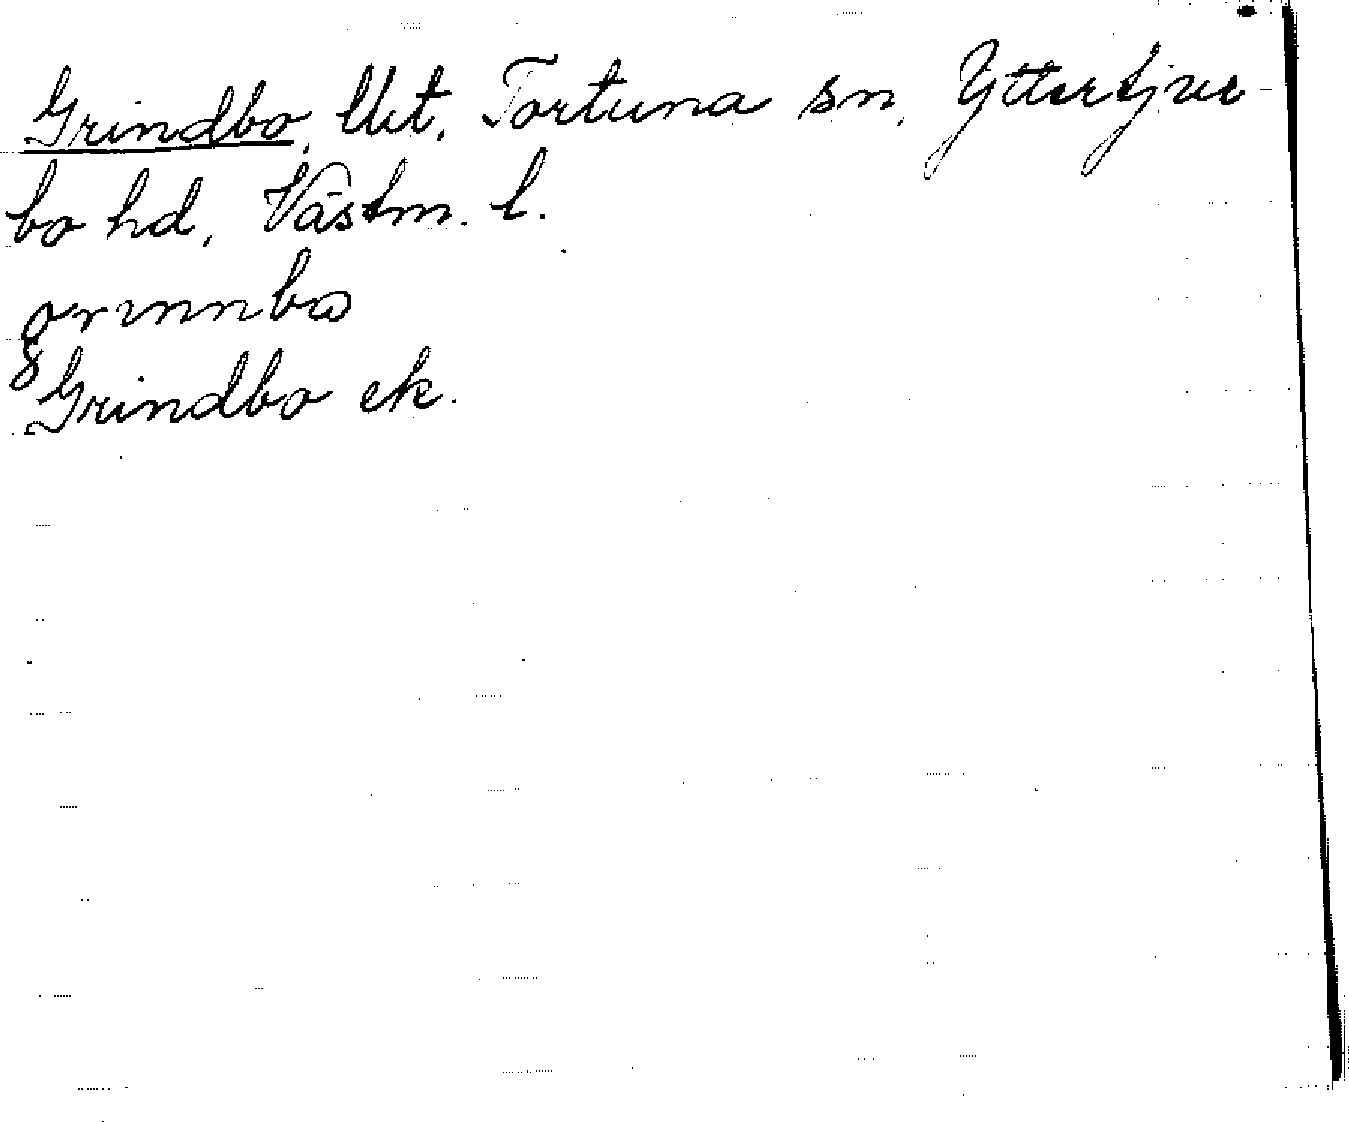 Grindbo, Utt. Tortuna sn, Yttertjur-
bo hd, Västm. l.
grınnbω
Grindbo ek.